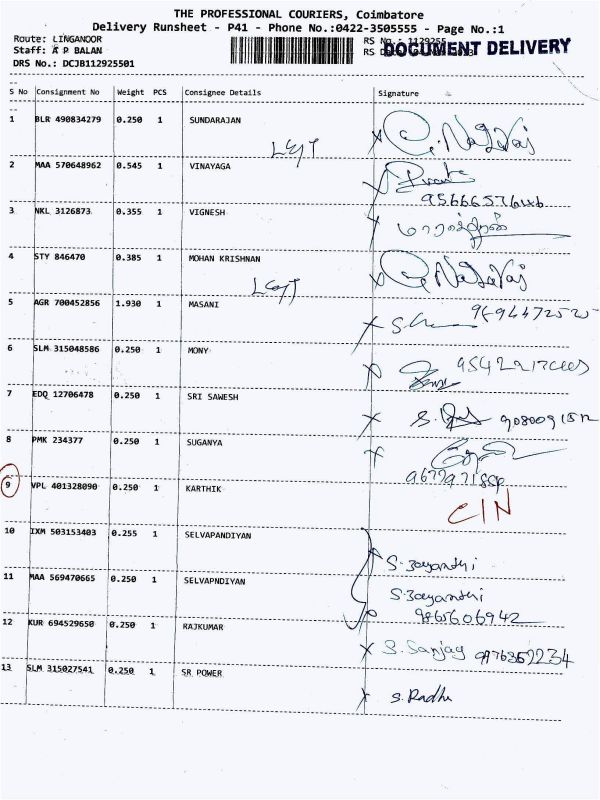 THE PROFESSIONAL COURIERS, Coimbatore
Delivery Runsheet - P41 - Phone No.:0422-3505555 - Page No.:1
Route: LINGANOOR RS No.: 1129255
Staff: A P BALAN RS D DOCUMENT DELIVERY
DRS No.: DCJB112925501
S No Consignment No Weight PCS Consignee Details Signature
1 BLR 490834279 0.250 1 SUNDARAJAN
2 MAA 570648962 0.545 1 VINAYAGA
3 NKL 3126873 0.355 1 VIGNESH
4 STY 846470 0.385 1 MOHAN KRISHNAN
5 AGR 700452856 1.930 1 MASANI
6 SLM 315048586 0.250 1 MONY
7 EDQ 12706478 0.250 1 SRI SAWESH
8 PMK 234377 0.250 1 SUGANYA
9 VPL 401328090 0.250 1 KARTHIK
C/N
10 IXM 503153403 0.255 1 SELVAPANDIYAN
S. Jayanthi
11 MAA 569470665 0.250 1 SELVAPNDIYAN
S. Jayanthi
9865606942
12 KUR 694529650 0.250 1 RAJKUMAR
S. Sanjay
13 SLM 315027541 0.250 1 SR POWER
S. Radha